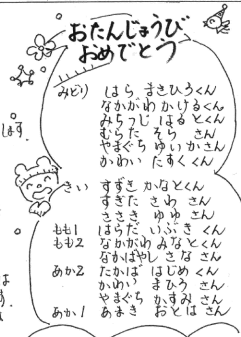 おたんじょうび
おめでとう
みどり はら まきひろくん
なかがわ かけるくん
みちつじ はるとくん
むらた そら さん
やまぐち ゆいかさん
かわい たすくくん
きい すずき かなとくん
すぎた さわ さん
ささき ゆゆ さん
もも1 はらだ いぶき くん
もも2 なかがわ みなとくん
なかばやし さな さん
あか2 たかば はじめ くん
かわい まひろ さん
やまぐち かすみ さん
あか1 あまき おとは さん
ます。
は
す。